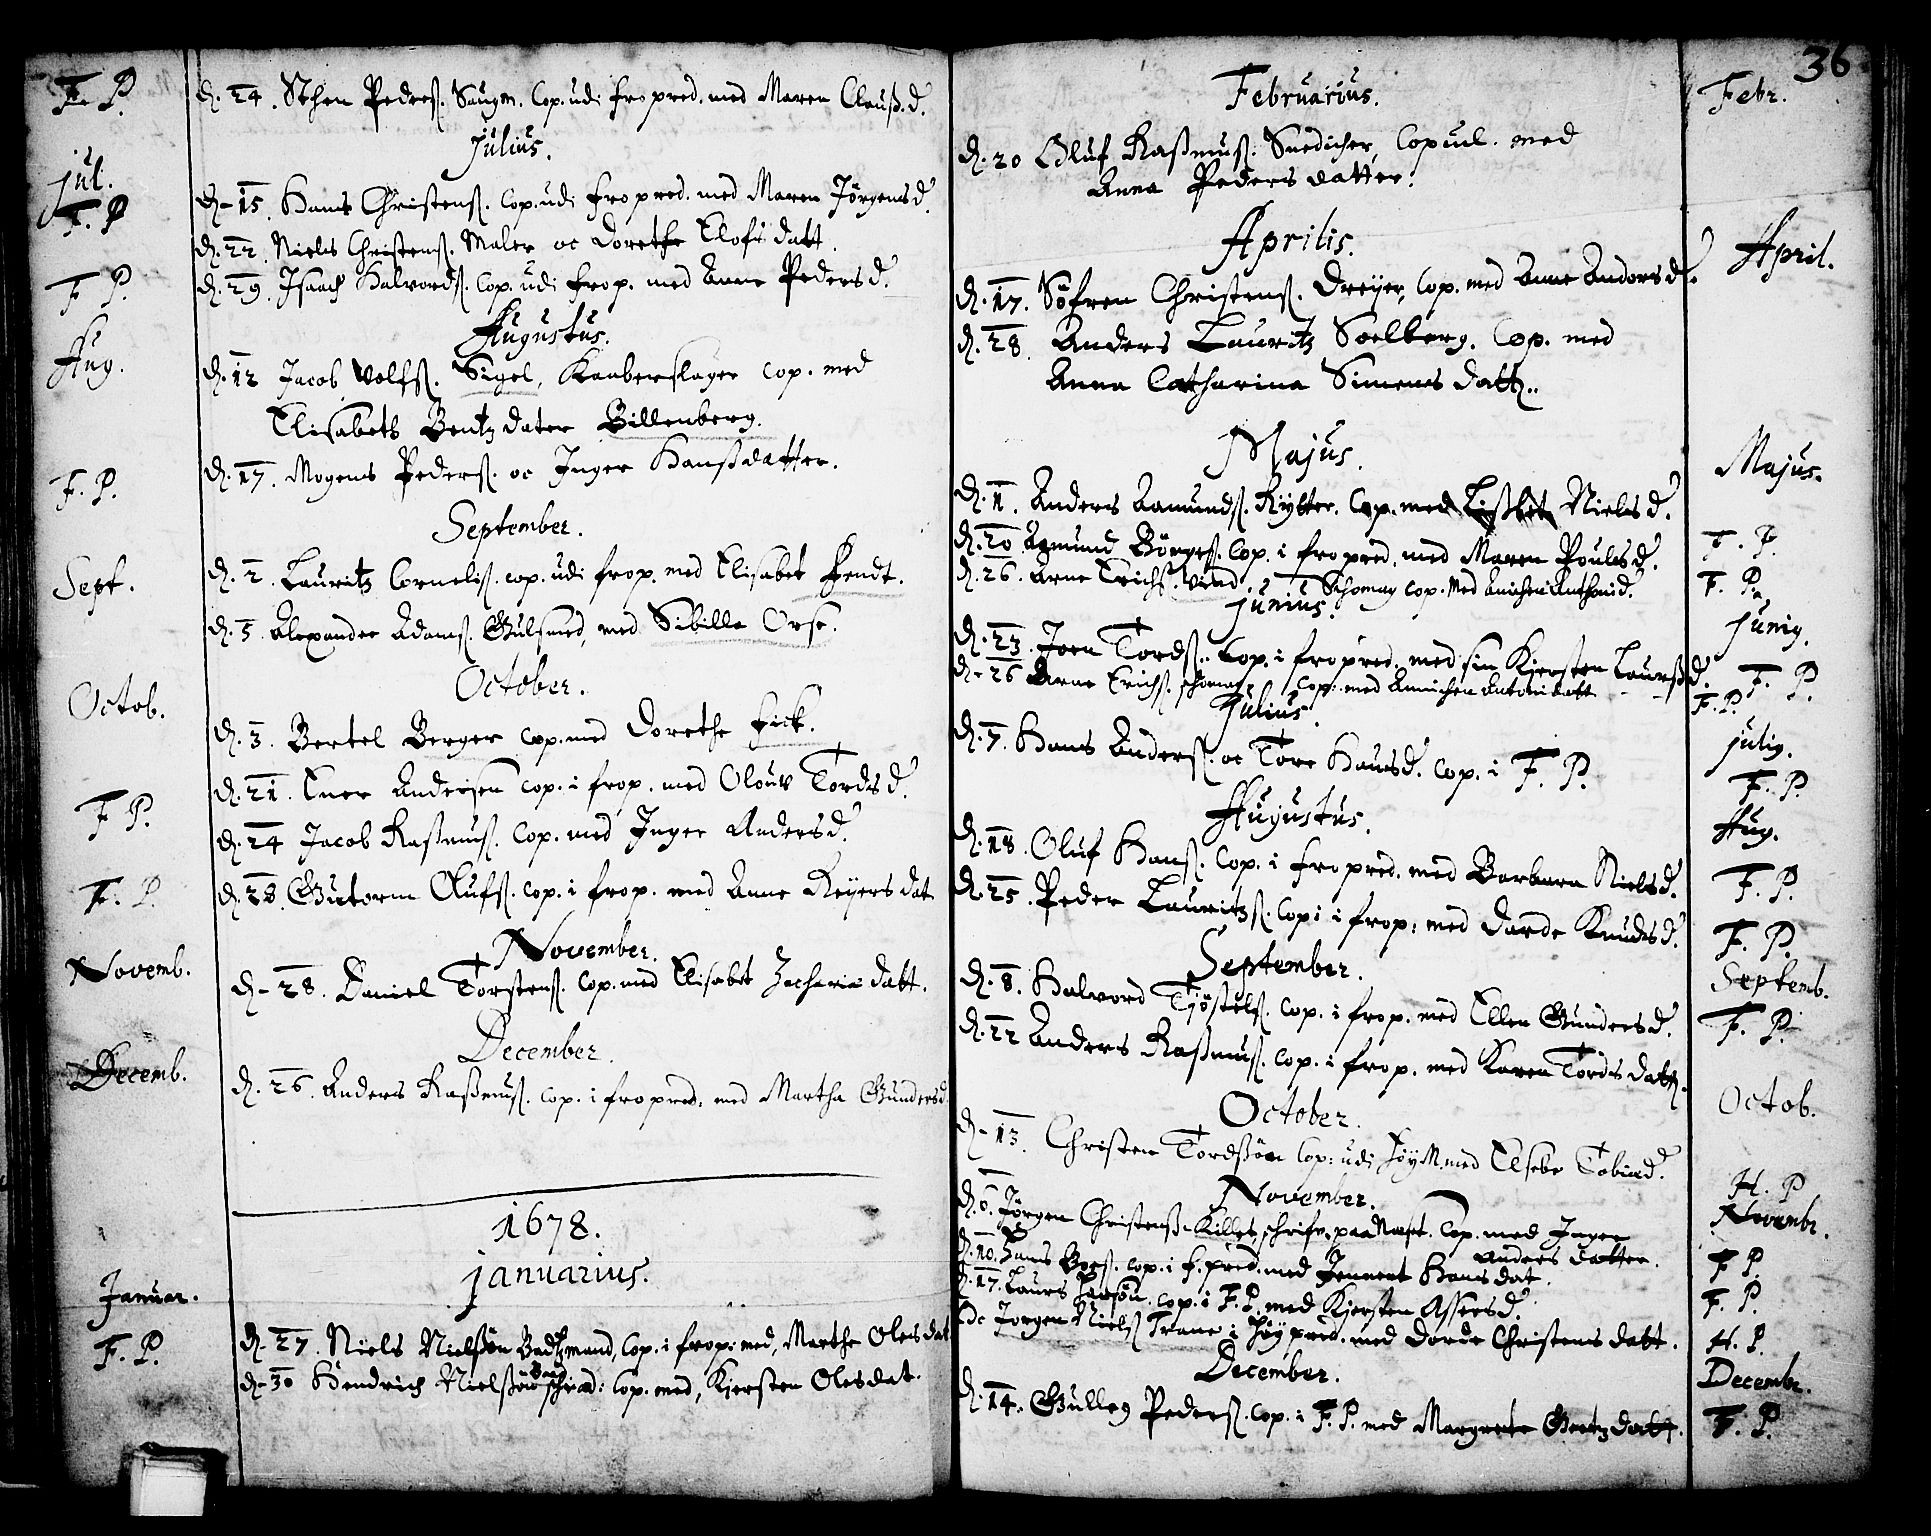 F. P. d. 24. Sthen Peders. Saugm. Cop. udi fropred. med Maren Clauß. d.
Julius.
jul.
F. P d. 15. Hans Christens. Cop. udi fropred. med Maren Jörgensd.
d. 22. Niels Christens. Maler oc Dorethe Elofs datt.
F P. d. 29. Isaach Halvords. Cop. udi frop. med Anne Pedersd.
Augustus.
Aug.
d. 12 Jacob Wolfs. Sigel, Kaaberslager cop. med
Elisabeth Bentz dater Billenberg.
F. P. d. 17. Mogens Peders. oc Inger Hanßdatter.
September.
Sept. d. 2. Lauritz Cornelis. cop. udi frop. med Elisabet Fendt.
d. 5. Alexander Adams. Gulsmed, med Sibilla Orse.
October.
Octob.
d. 3. Bertel Berger cop. med Dorethe Fick.
F P. d. 21. Ener Andersen cop. i frop. med Olouv Tordsd.
d. 24 Jacob Raßmus. Cop. med Inger Andersd.
F. P. d. 28. Gutorm Olufs. cop. i frop. med Anne Reijersdat
November.
Novemb. d. 28. Daniel Torstens. cop. med Elisabet Zachariæ datt.
December.
Decemb. d. 26. Anders Raßmus. cop. i fropred. med Martha Gundersd.
1678.
januarius.
Januar.
F. P. d. 27. Niels Nielsön Badtzmand, Cop. i frop: med, Marthe Olesdat
d. 30 Hendrich Nielsön cop. med, Kjersten Olesdat.
36
Februarius. Febr.
d. 20 Oluf Raßmus. Snedicher, Copul. med
Anna Peders datter.
Aprilis. April.
d. 17. Söfren Christens. Dreyer, Cop. med Anne Andersd.
d. 28. Anders Lauritz Soelberg. Cop. med
Anna Catharina Simens datt.
Majus. Majus.
d. 11. Anders Aamunds. Rytter. Cop. med Lißbet Nielsd.
d. 20 Agmund Börges. Cop. i fropred. med Maren Poulsd. F. P.
d. 26. Arne Erichs. Schomag cop. med Anichen Anthonid. F. P.
junius. Junij.
d. 23. Joen Tords. Cop. i fropred. med sin Kjersten Laurßd. F. P.
d. 26 Arne Erichs. schomag cop. med Annichen Antoni datt F. P.
Julius. julij.
d. 7. Hans Anders. oc Tore Hansd. cop. i F. P. F. P.
Augustus. Aug.
d. 18. Oluf Hans. Cop. i fropred. med Barbara Nielsd. F. P.
d. 25. Peder Lauritzs. Cop: i frop: med Dorde Knudsd. F. P.
September. Septemb.
d. 8. Halvord Tjöstels. Cop. i frop. med Ellen Gundersd. F. P.
d. 22 Anders Raßmus. cop. i frop. med Karen Tords datt.
October. Octob.
d. 13. Christen Tordssön Cop: udi höyM. med Elsebe Tobiæd. H. P
November. Novembr.
d. 6. Jörgen Christens. Cop. med Inger
Anders datter.
d. 10. Hans Bors. cop. i f. pred. med Jennert Hansdat. F P.
d. 17. Laurs cop. i F. P. med Kjersten Assersd. F. P.
Jorgen Niels Trane i Höypred. med Dorde Christens datt. H. P.
December. Decembr.
d. 14. Gulleg Peders. Cop. i F. P. med Margrete Gertzdatt. F. P.